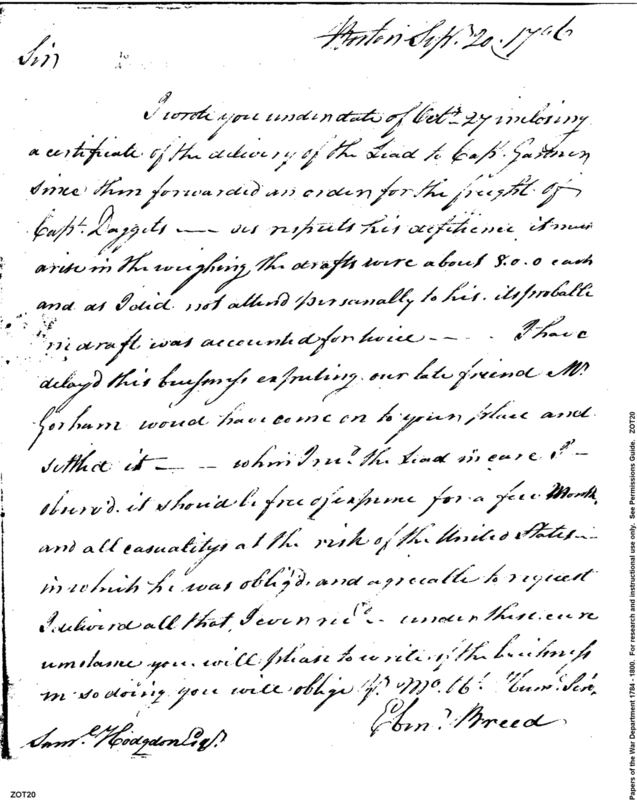 Boston Sept. 20. 1796
Sir
I wrote you under date of Octr. 27 inclosing
a certificate of the delivery of the Lead to Capt. Gardner
since then forwarded an order for the freight of
Capt. Daggets —— as respects his defitience it must
arise in the weighing, the drafts were about 8.0.0 each
and as I did not attend personally to his. its probable
draft was accounted for twice —— . I have
delay'd this buisness expecting our late friend Mr.
Gorham woud have come on to your place and
settled it — —— when I recd. the Lead in care I
observ'd it should be free of expence for a few Month,
and all casualitys at the risk of the United States —
in which he was oblig'd. and agreeable to request
I deliverd all that I ever recd. — under these circ
umstance you will please to write if the buisness
in so doing you will oblige Yr. Mo. Obt. Humr. Serv.
Ebnr. Breed
Saml. Hodgdon Esqr.
ZOT20
Papers of the War Department 1784 - 1800. For research and instructional use only. See Permissions Guide. ZOT20